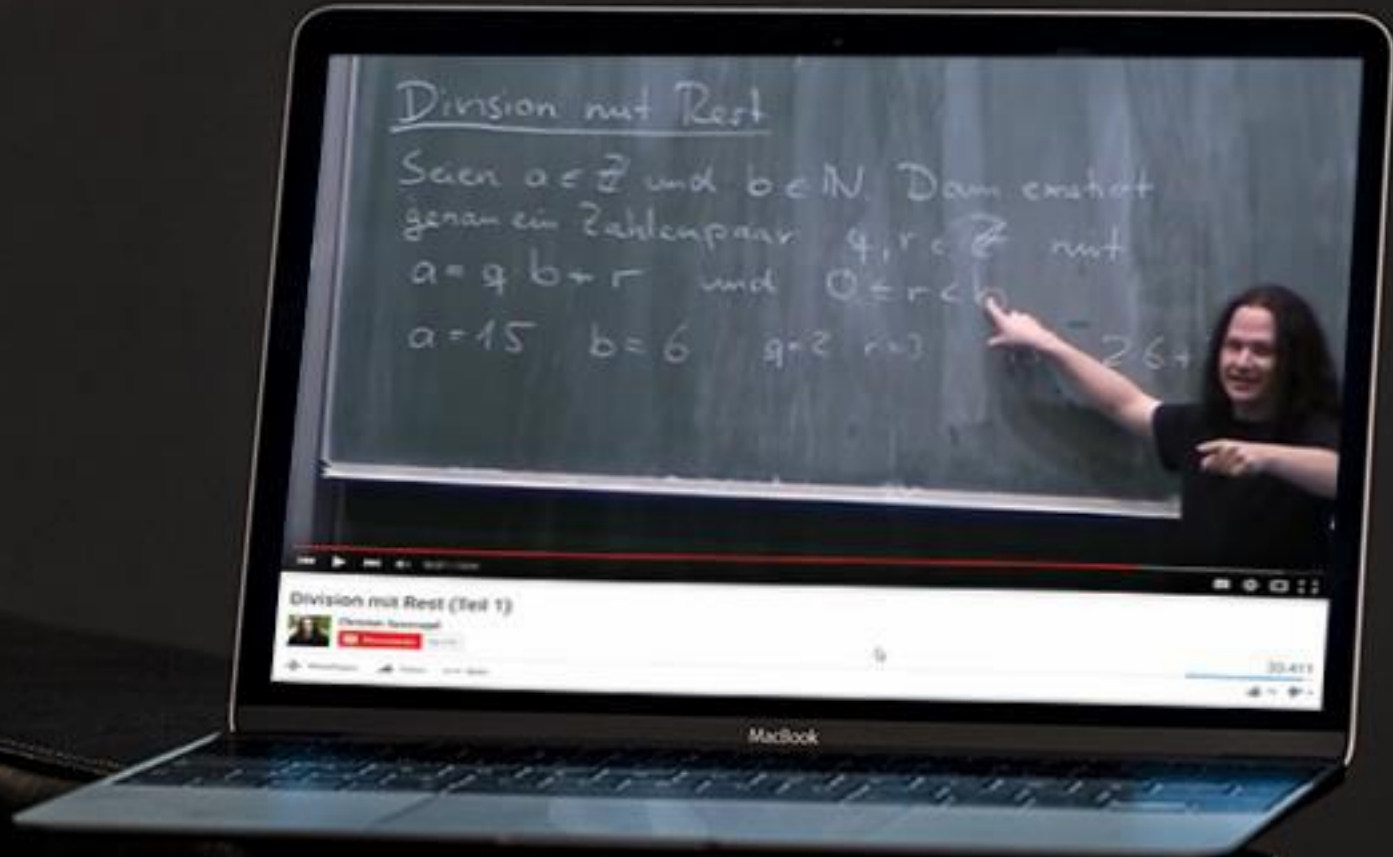 Division mit Rest
Seien a ∈ ℤ und b ∈ ℕ. Dann existiert
genau ein Zahlenpaar q, r ∈ ℤ mit
a = q b + r und 0 ≤ r < b
a = 15 b = 6 q = 2 r = 3 2 6 +
Division mit Rest (Teil 1)
33.411
MacBook